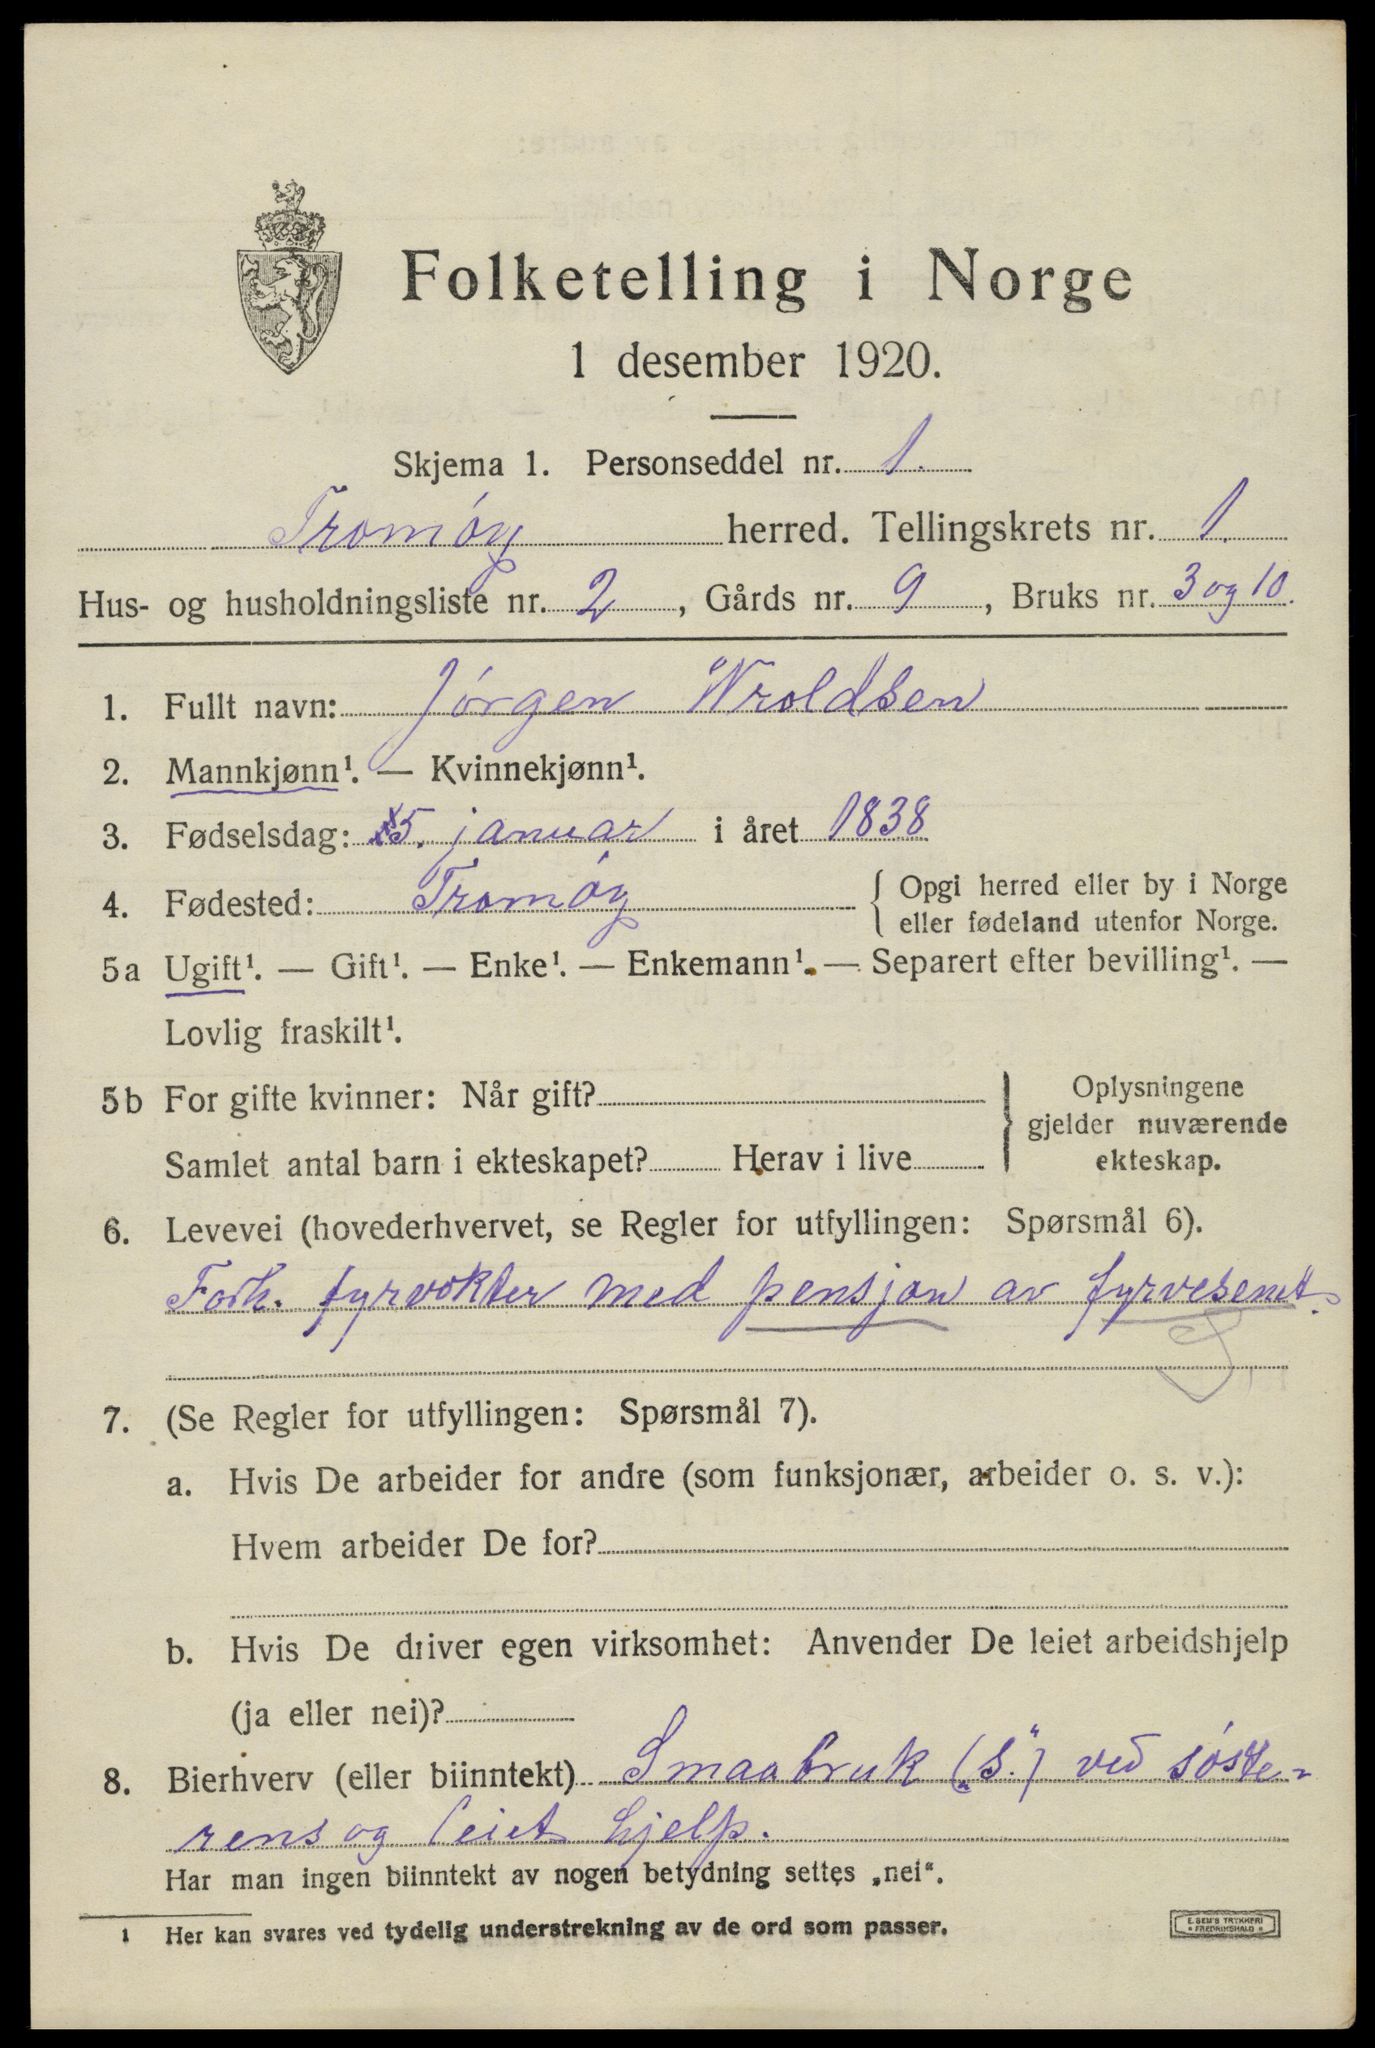 Folketelling i Norge
1 desember 1920.
Skjema 1. Personseddel nr. 1.
Tromöy herred. Tellingskrets nr. 1.
Hus- og husholdningsliste nr. 2, Gårds nr. 9, Bruks nr. 3 og 10.
1. Fullt navn: Jörgen Wroldsen
2. Mannkjønn¹. — Kvinnekjønn¹.
3. Fødselsdag: 5. januar i året 1838
4. Fødested: Tromöy { Opgi herred eller by i Norge
eller fødeland utenfor Norge.
5a Ugift¹. — Gift¹. — Enke¹. — Enkemann¹. — Separert efter bevilling¹. —
Lovlig fraskilt¹.
5b For gifte kvinner: Når gift?
Samlet antal barn i ekteskapet? Herav i live
} Oplysningene
gjelder nuværende
ekteskap.
6. Levevei (hovederhvervet, se Regler for utfyllingen: Spørsmål 6).
Forh. fyrvokter med pensjon av fyrvesenet.
7. (Se Regler for utfyllingen: Spørsmål 7).
a. Hvis De arbeider for andre (som funksjonær, arbeider o. s. v.):
Hvem arbeider De for?
b. Hvis De driver egen virksomhet: Anvender De leiet arbeidshjelp
(ja eller nei)?
8. Bierhverv (eller biinntekt) Smaabruk („S.") ved söste-
rens og leiet hjelp.
Har man ingen biinntekt av nogen betydning settes „nei".
1 Her kan svares ved tydelig understrekning av de ord som passer.
E. SEM'S TRYKKERI
FREDRIKSHALD